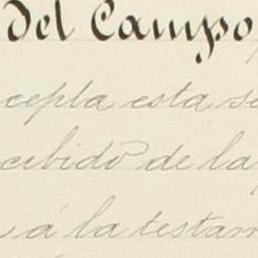 del Campo
cepta esta se
cibido de la
á la testam